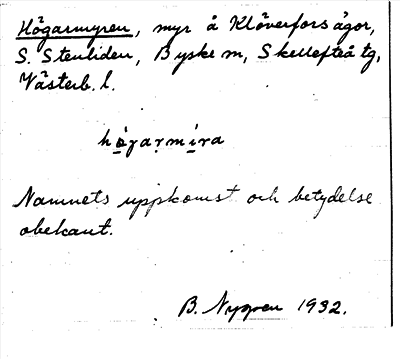 Högarmyren, myr å Klöverforsägor,
S. Stenliden, Byske sn, Skellefteå tg,
Västerb. l.
högarmira
Namnets uppkomst och betydelse
obekant.
B. Nygren 1932.